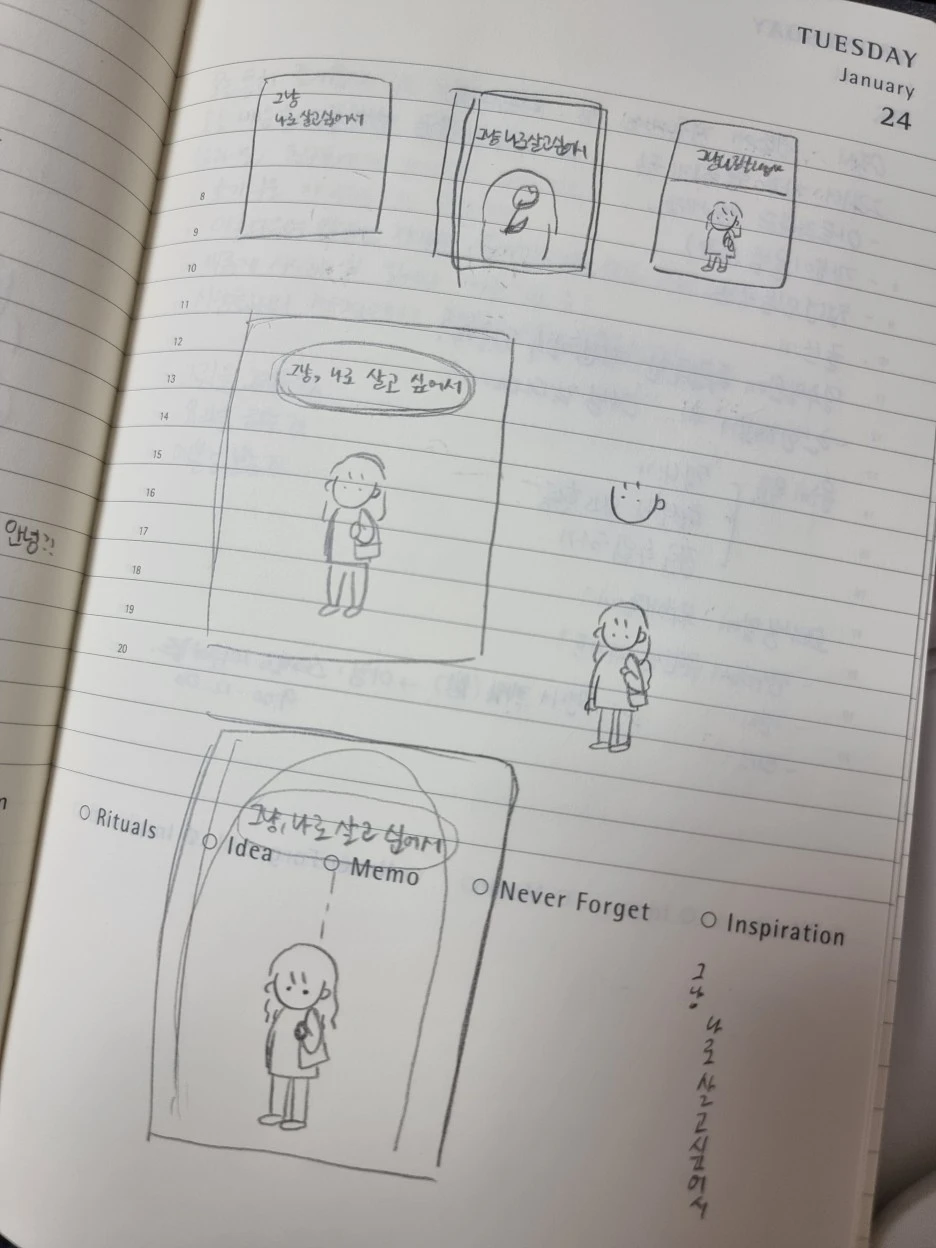 TUESDAY
January
24
그냥
나로 살고 싶어서
그냥 나로 살고 싶어서
그냥 나로 살고 싶어서
8
9
10
11
12
13
14
15
16
17
18
19
20
그냥, 나로 살고 싶어서
안녕?!
그냥, 나로 살고 싶어서
Rituals
Idea
Memo
Never Forget
Inspiration
그
냥
나
로
살
고
싶
어
서